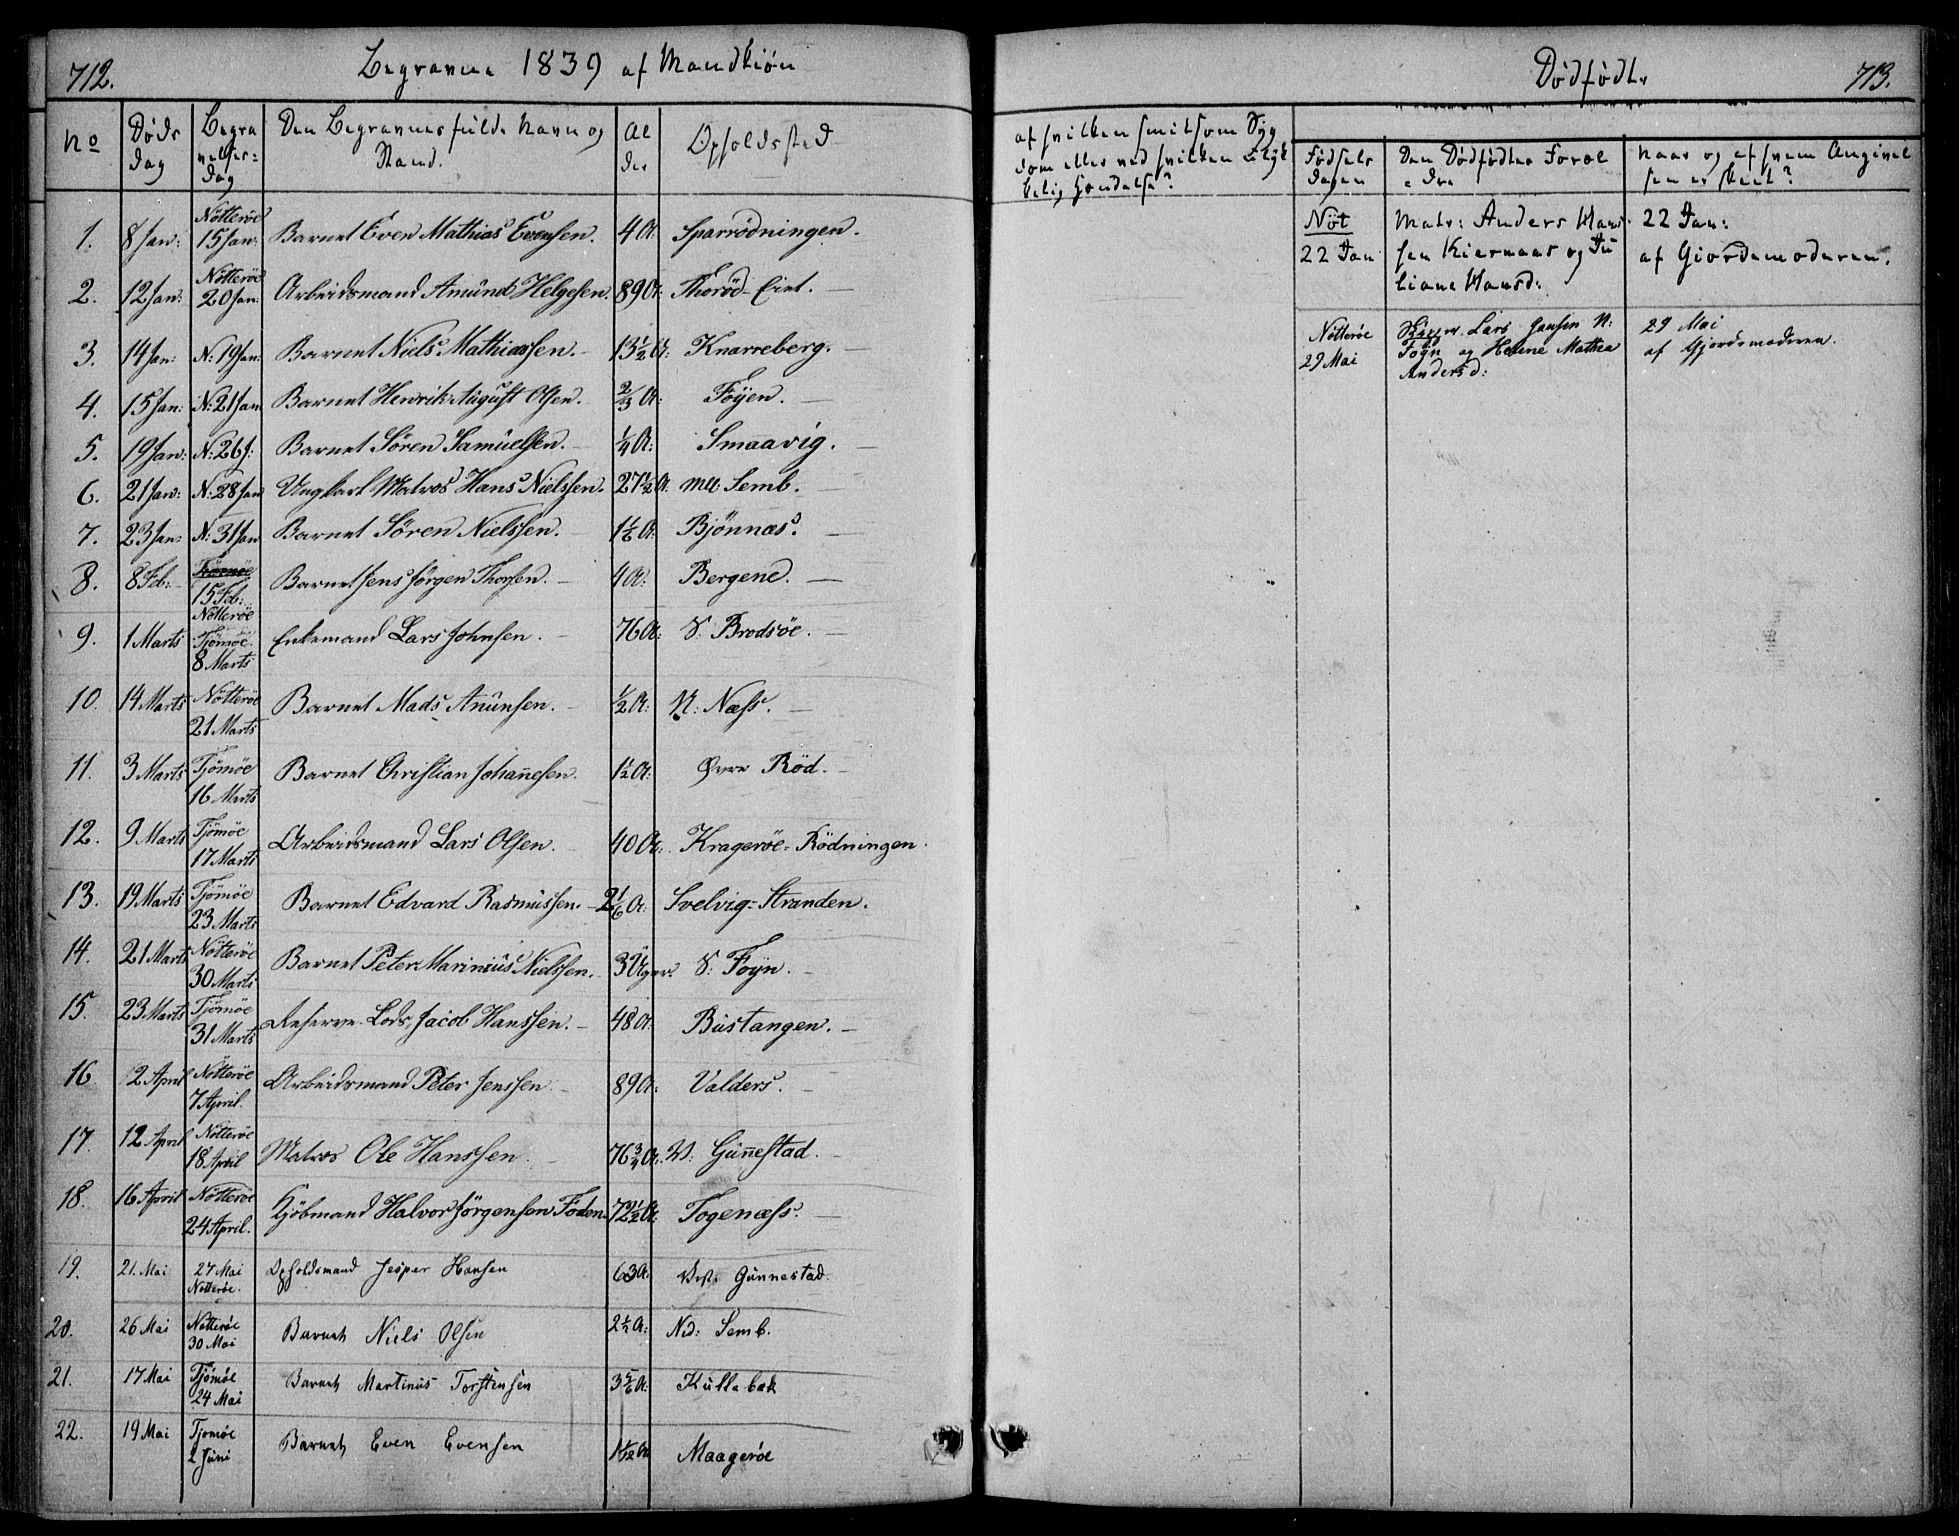 712.
Begravne 1839 af Mandkiøn
No
Døds Dag
Begravelses=Dag
Den Begravnes fulde Navn og Stand.
Alder
Opholdssted
1. 8 Jan: Nötteröe 15 Jan: Barnet Even Mathias Evensen. 4 A. Sparrödningen.
2. 12 Jan: Nötteröe 20 Jan: Arbeidsmand Amund Helgesen. 89 A: Thoröd-Eiet.
3. 14 Jan: N: 19 Jan: Barnet Niels Mathiassen. 13 1/2 A: Knarreberg.
4. 15 Jan: N: 21 Jan Barnet Henrik August Olsen. 2/3 A: Föyen.
5. 19 Jan: N: 26 J: Barnet Sören Samuelsen. 1/4 A: Smaavig.
6. 21 Jan: N: 28 Jan Ungkarl Matros Hans Nielssen. 27 1/2 A. Mel: Semb.
7. 23 Jan: N: 31 Jan Barnet Sören Nielssen. 1 1/6 A: Bjönnæs.
8. 8 Feb: Tjömöe 15 Feb: Nötteröe Barnet Jens Jörgen Thorsen. 4 A: Bergene.
9. 1 Marts Tjömöe 8 Marts Enkemand Lars Johnsen. 76 A: S. Brodsöe.
10. 14 Marts Nötteröe 21 Marts Barnet Mads Anunsen. 1/2 A: N: Næss.
11. 3 Marts Tjömöe 16 Marts Barnet Christian Johannesen. 1 1/2 A: Øvre Röd.
12. 9 Marts Tjömöe 17 Marts Arbeidsmand Lars Olsen. 40 A: Krageröe=Rödningen.
13. 19 Marts Tjömöe 23 Marts Barnet Edvard Rasmussen. 2 1/6 A: Svelvig=Stranden.
14. 21 Marts Nötteröe 30 Marts Barnet Peter Marinius Nielssen. 3 Uger. S: Foyn.
15. 23 Marts Tjömöe 31 Marts Reserve Lods Jacob Hanssen. 48 A: Bustangen.
16 2 April Nötteröe 7 April. Arbeidsmand Peter Jenssen 89 A: Valders.
17. 12 April Nötteröe 18 April Matros Ole Hanssen 76 3/4 A. V: Gunnestad.
18. 16 April Nötteröe 24 April. Kjöbmand Halvor Jörgensen Föden. 72 1/2 A: Togenæss.
19. 21. Mai 27 Mai Nötteröe. Opholdsmand Jesper Hansen 63 A: Vest: Gunnestad.
20. 26 Mai Nötteröe 30 Mai Barnet Niels Olsen 2 1/2 A: Ned: Semb.
21. 17 Mai Tjömöe 24 Mai Barnet Martinus Torstensen 3 5/6 A: Kullebak
22. 19 Mai Tjomöe 2 Juni Barnet Even Evensen 1 1/12 A Maageröe
Dødfødte
713.
af hvilken smitsom Syg
dom eller ved hvilken Ulyk
kelig Hændelse?
Fødsels Dagen
Den Dødfødtes Forældre
Naar og af hvem Angivelsen er skeet?
Nöt 22 Jan
Matr: Anders Hans
sen Kiernaas og Ju
liane Hansd:
22 Jan:
af Giordemoderen.
Nötteröe 29 Mai
Lars Hansen N:
Föyn og Helene Mathea
Andersd:
29 Mai
af Gjordemoderen.